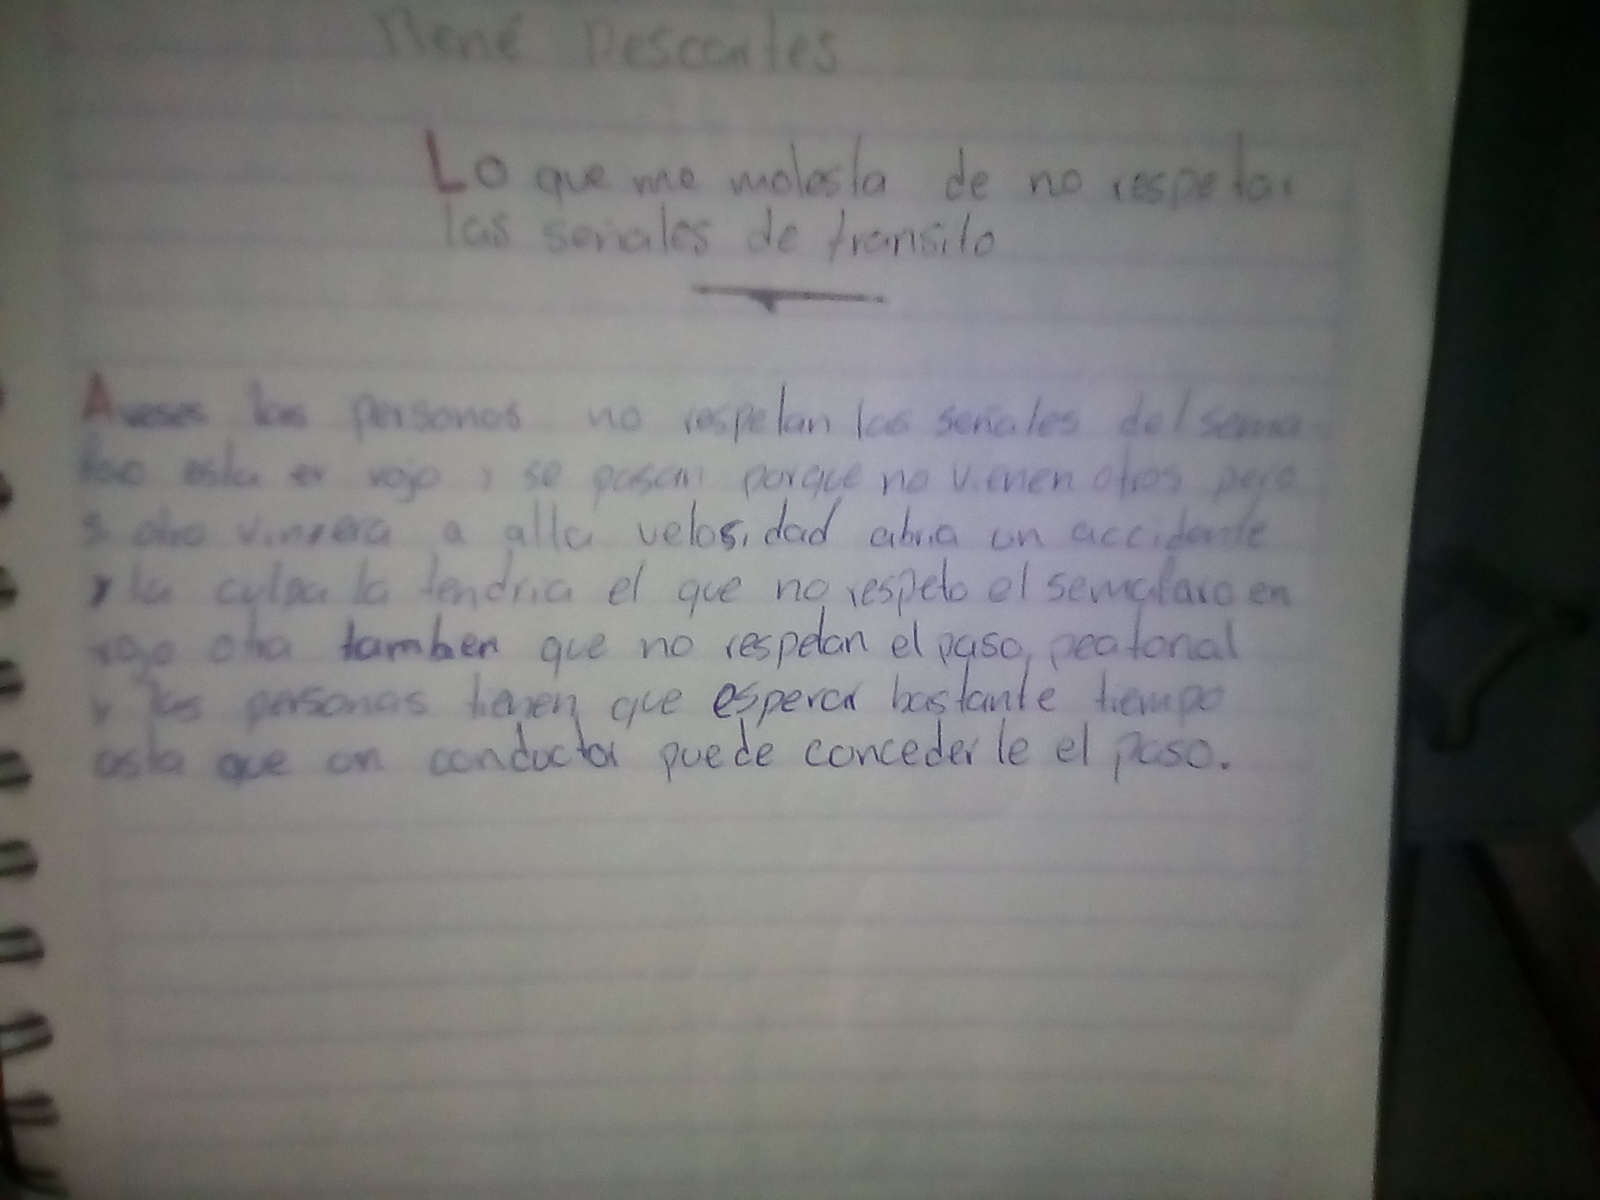 René Descartes
Lo que me molesta de no respetar
las señales de transito
Aveses las personas no respetan las señales del sema
foro esta en rojo y se pasan porque no vienen otros pero
si otro viniera a alta velosidad abria un accidente
y la culpa la tendria el que no respeto el semafaro en
rojo otra tamben que no respetan el paso peatonal
y las personas tienen que esperar bastante tiempo
asta que un conductor puede conceder le el paso.